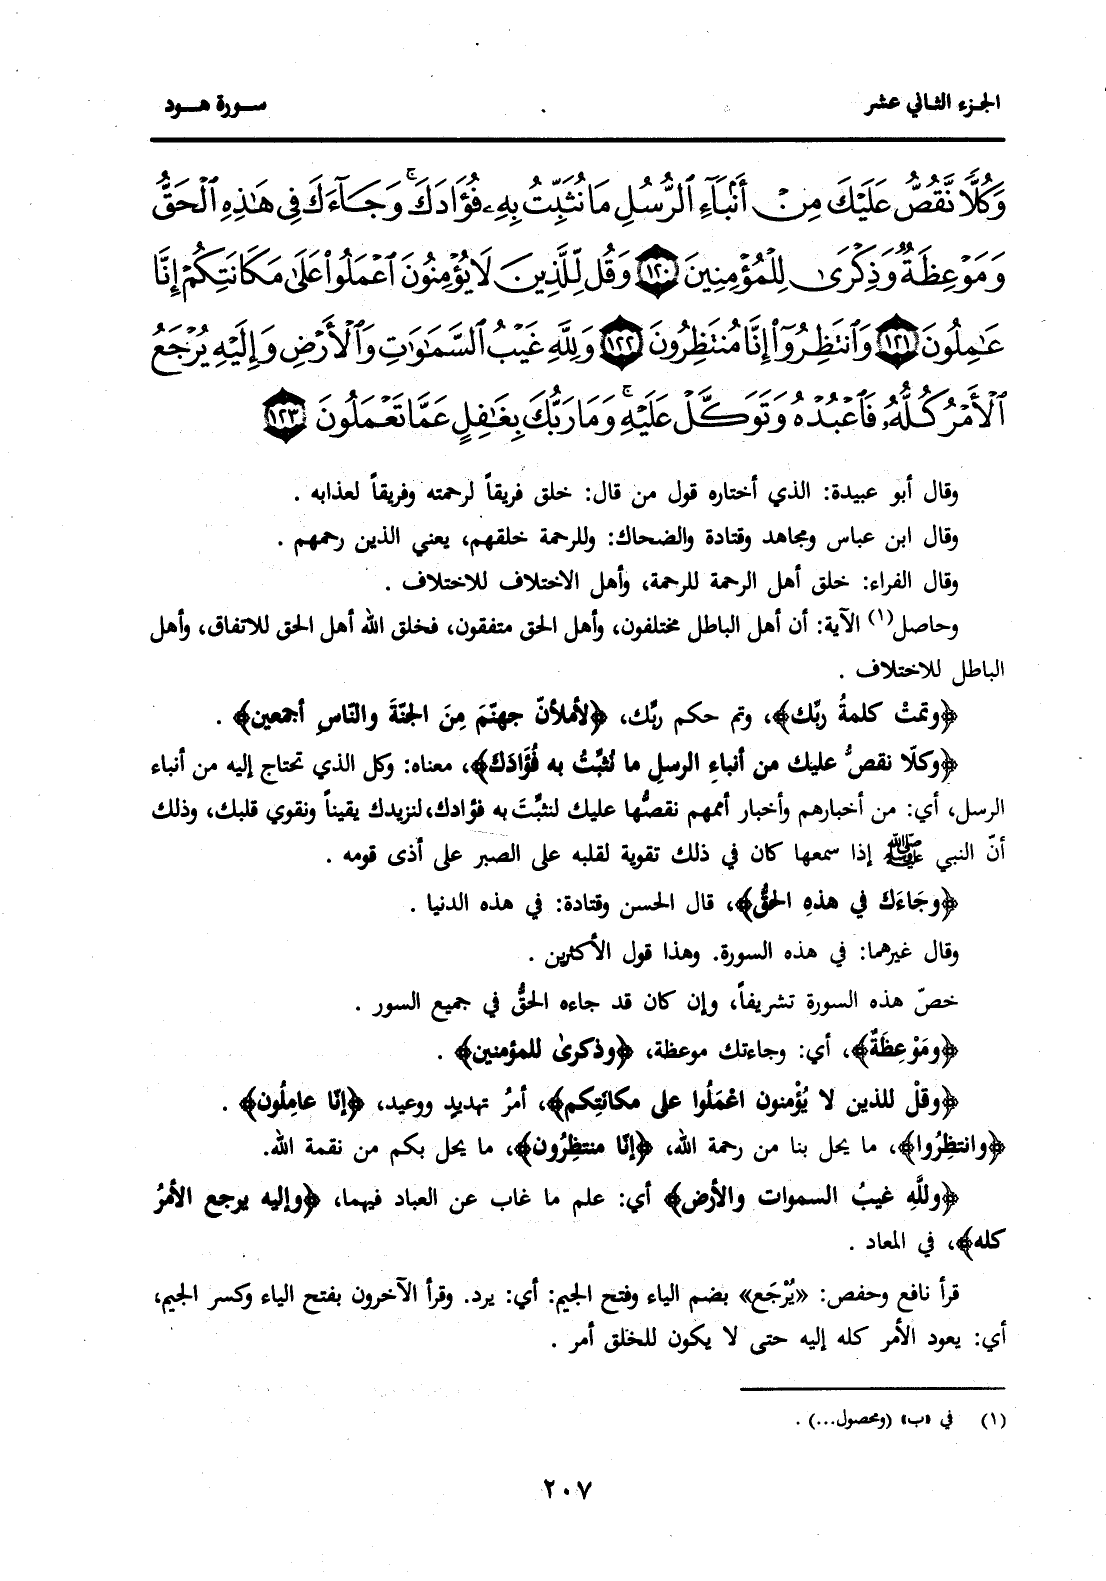 الجزء الثاني عشر
سورة هود
وَكُلًّا نَّقُصُّ عَلَيْكَ مِنْ أَنۢبَآءِ ٱلرُّسُلِ مَا نُثَبِّتُ بِهِۦ فُؤَادَكَ ۚ وَجَآءَكَ فِى هَٰذِهِ ٱلْحَقُّ
وَمَوْعِظَةٌ وَذِكْرَىٰ لِلْمُؤْمِنِينَ ﴿١٢٠﴾ وَقُل لِّلَّذِينَ لَا يُؤْمِنُونَ ٱعْمَلُوا۟ عَلَىٰ مَكَانَتِكُمْ إِنَّا
عَٰمِلُونَ ﴿١٢١﴾ وَٱنتَظِرُوٓا۟ إِنَّا مُنتَظِرُونَ ﴿١٢٢﴾ وَلِلَّهِ غَيْبُ ٱلسَّمَٰوَٰتِ وَٱلْأَرْضِ وَإِلَيْهِ يُرْجَعُ
ٱلْأَمْرُ كُلُّهُۥ فَٱعْبُدْهُ وَتَوَكَّلْ عَلَيْهِ ۚ وَمَا رَبُّكَ بِغَٰفِلٍ عَمَّا تَعْمَلُونَ ﴿١٢٣﴾
وقال أبو عبيدة: الذي أختاره قول من قال: خلق فريقاً لرحمته وفريقاً لعذابه .
وقال ابن عباس ومجاهد وقتادة والضحاك: وللرحمة خلقهم، يعني الذين رحمهم .
وقال الفراء: خلق أهل الرحمة للرحمة، وأهل الاختلاف للاختلاف .
وحاصل(١) الآية: أن أهل الباطل مختلفون، وأهل الحق متفقون، فخلق الله أهل الحق للاتفاق، وأهل
الباطل للاختلاف .
﴿وتمتْ كلمةُ ربِّك﴾، وتم حكم ربِّك، ﴿لأملأنّ جهنّمَ مِنَ الجنّةَ والنّاسِ أجمعين﴾ .
﴿وكلّا نقصُّ عليك من أنباءِ الرسلِ ما نُثبِّتُ به فُؤَادَكَ﴾، معناه: وكل الذي تحتاج إليه من أنباء
الرسل، أي: من أخبارهم وأخبار أممهم نقصُّها عليك لنثبِّتَ به فؤادك، لنزيدك يقيناً ونقوي قلبك، وذلك
أنّ النبي ﷺ إذا سمعها كان في ذلك تقوية لقلبه على الصبر على أذى قومه .
﴿وجَاءَكَ في هذهِ الحقُّ﴾، قال الحسن وقتادة: في هذه الدنيا .
وقال غيرهما: في هذه السورة. وهذا قول الأكثرين .
خصّ هذه السورة تشريفاً، وإن كان قد جاءه الحقُّ في جميع السور .
﴿ومَوْعِظَةٌ﴾، أي: وجاءتك موعظة، ﴿وذكرىٰ للمؤمنين﴾ .
﴿وقلْ للذين لا يُؤْمنون اعْمَلُوا على مكانَتِكم﴾، أمرُ تهديدٍ ووعيد، ﴿إنّا عامِلُون﴾ .
﴿وانتظِرُوا﴾، ما يحل بنا من رحمة الله، ﴿إنّا منتظِرُون﴾، ما يحل بكم من نقمة الله.
﴿وللَّهِ غيبُ السموات والأرض﴾ أي: علم ما غاب عن العباد فيهما، ﴿وإليه يرجع الأمرُ
كله﴾، في المعاد .
قرأ نافع وحفص: «يُرْجَع» بضم الياء وفتح الجيم: أي: يرد. وقرأ الآخرون بفتح الياء وكسر الجيم،
أي: يعود الأمر كله إليه حتى لا يكون للخلق أمر .
(١) في «ب» (ومحصول...) .
٢٠٧